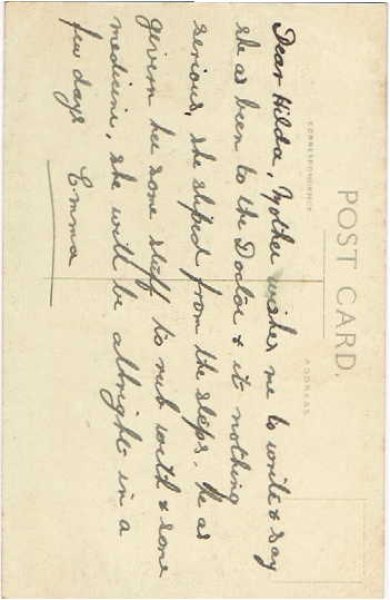 POST CARD.
CORRESPONDENCE
ADDRESS
Dear Hilda, Mother wishes me to write & say
she as been to the Doctor & it nothing
serious, she sliped from the steps. He as
given her some stuff to rub with & some
medicine, she will be allright in a
few days
Emma